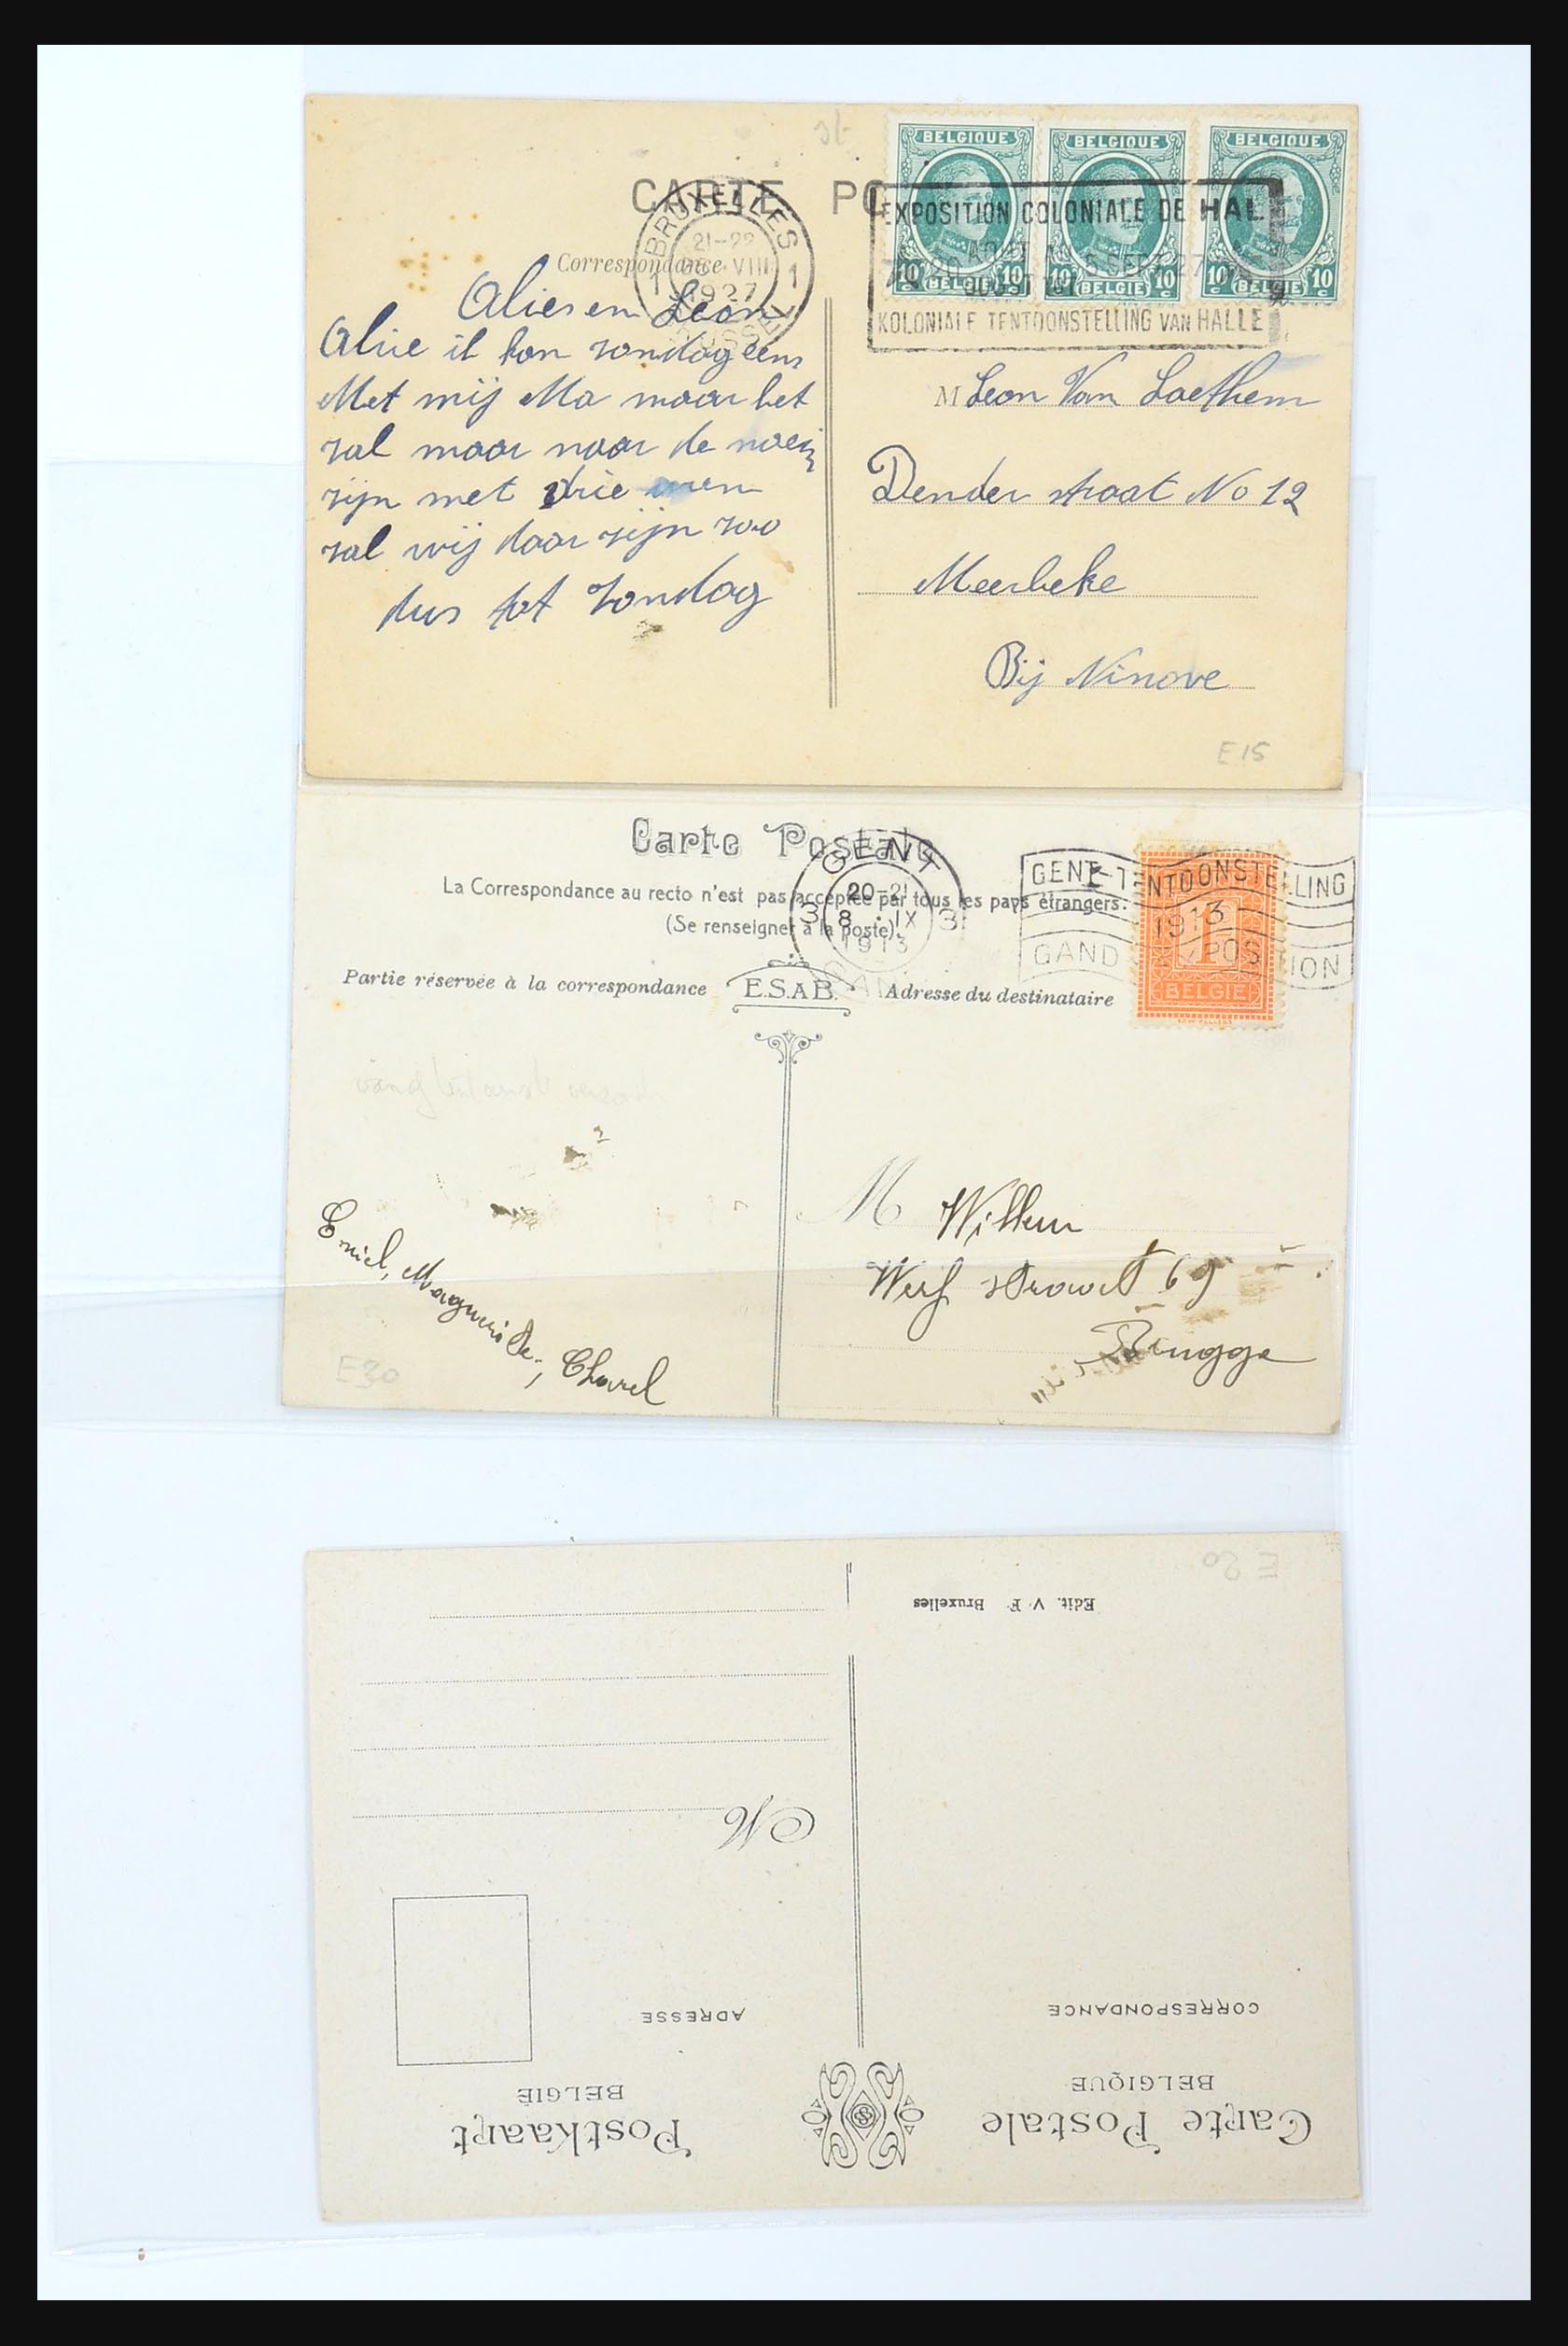 CARTE PO
BELGIQUE BELGIQUE BELGIQUE
BRUXELLES
21-22
VIII
1 1
1927
EXPOSITION COLONIALE DE HAL
AOUT 5 SEPT 27
10c 10c 10c 10c 10c 10c
BELGIË BELGIË BELGIË
KOLONIALE TENTOONSTELLING VAN HALLE
Correspondance
Alies en Leon
Alice ik kon zondag eens
Met mij Ma maar het
zal maar naar de noen
zijn met drie
zal wij daar zijn zoo
dus tot Zondag
M Leon Van Laethem
Denderstraat No 12
Meerbeke
Bij Ninove
E 15
Carte Postale
La Correspondance au recto n'est pas acceptée par tous les pays étrangers.
(Se renseigner à la poste).
GENT
20-21
3 8 IX 3
1913
GENT-TENTOONSTELLING
1913
GAND EXPOSITION
1
BELGIE
Partie réservée à la correspondance
E.S.A B.
Adresse du destinataire
Emiel, Marguerite, Charel
E30
M Willem
Werf straat 69
Brugge
E 20
Edit. V F Bruxelles
M
ADRESSE
CORRESPONDANCE
Carte Postale
BELGIQUE
Postkaart
BELGIË